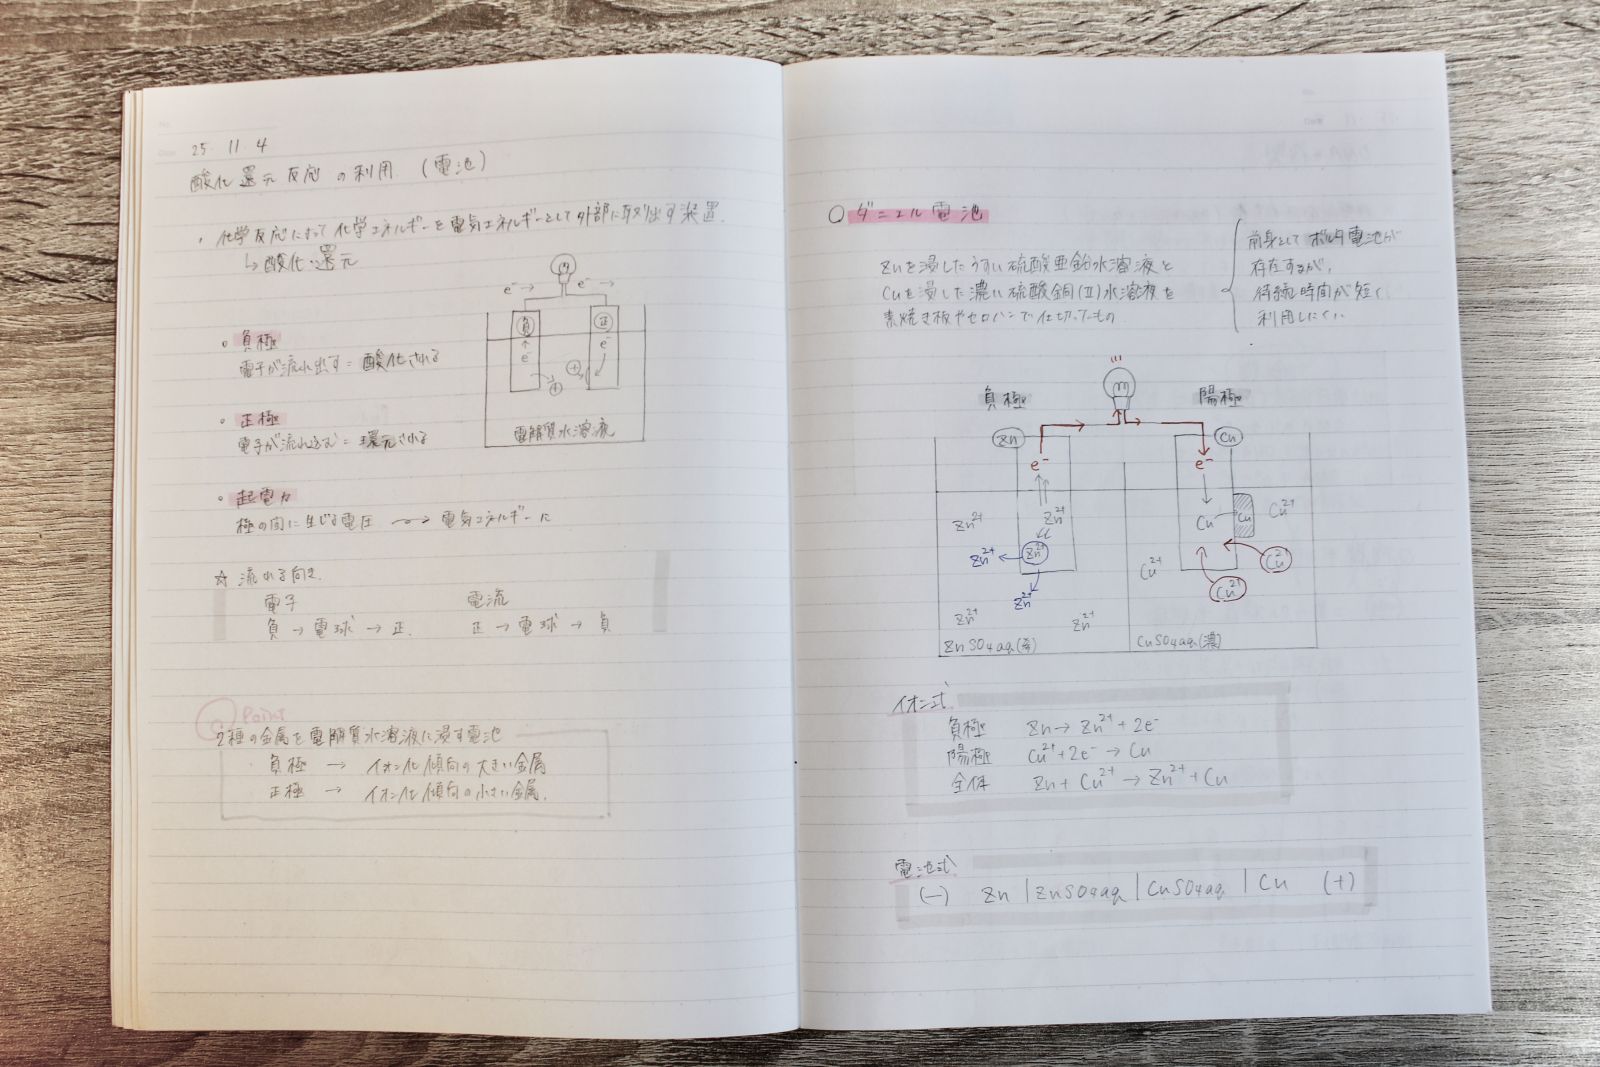 25. 11. 4
酸化還元反応の利用 (電池)
・化学反応によって化学エネルギーを電気エネルギーとして外部に取り出す装置.
↳ 酸化・還元
e⁻→ e⁻→
負 正
e⁻ e⁻
⊕ ⊕
電解質水溶液
。負極
電子が流れ出す = 酸化される
。正極
電子が流れ込む = 還元される
。起電力
極の間に生じる電圧 〜→ 電気エネルギーに
☆ 流れる向き.
電子 電流
負 → 電球 → 正. 正 → 電球 → 負
Point
2種の金属を電解質水溶液に浸す電池
負極 → イオン化傾向の大きい金属
正極 → イオン化傾向の小さい金属.
○ ダニエル電池
Znを浸したうすい硫酸亜鉛水溶液と
Cuを浸した濃い硫酸銅(Ⅱ)水溶液を
素焼き板やセロハンで仕切ったもの
前身として ボルタ電池が
存在するが,
持続時間が短く
利用しにくい.
負極 陽極
Zn Cu
e⁻ e⁻
Zn²⁺ Zn²⁺ Cu Cu Cu²⁺
Zn²⁺ Zn²⁺ Cu²⁺ Cu²⁺
Zn²⁺ Cu²⁺
Zn²⁺ Zn²⁺
ZnSO₄aq(希) CuSO₄aq(濃)
イオン式
負極 Zn → Zn²⁺ + 2e⁻
陽極 Cu²⁺ + 2e⁻ → Cu
全体 Zn + Cu²⁺ → Zn²⁺ + Cu
電池式
(−) Zn | ZnSO₄aq | CuSO₄aq | Cu (+)